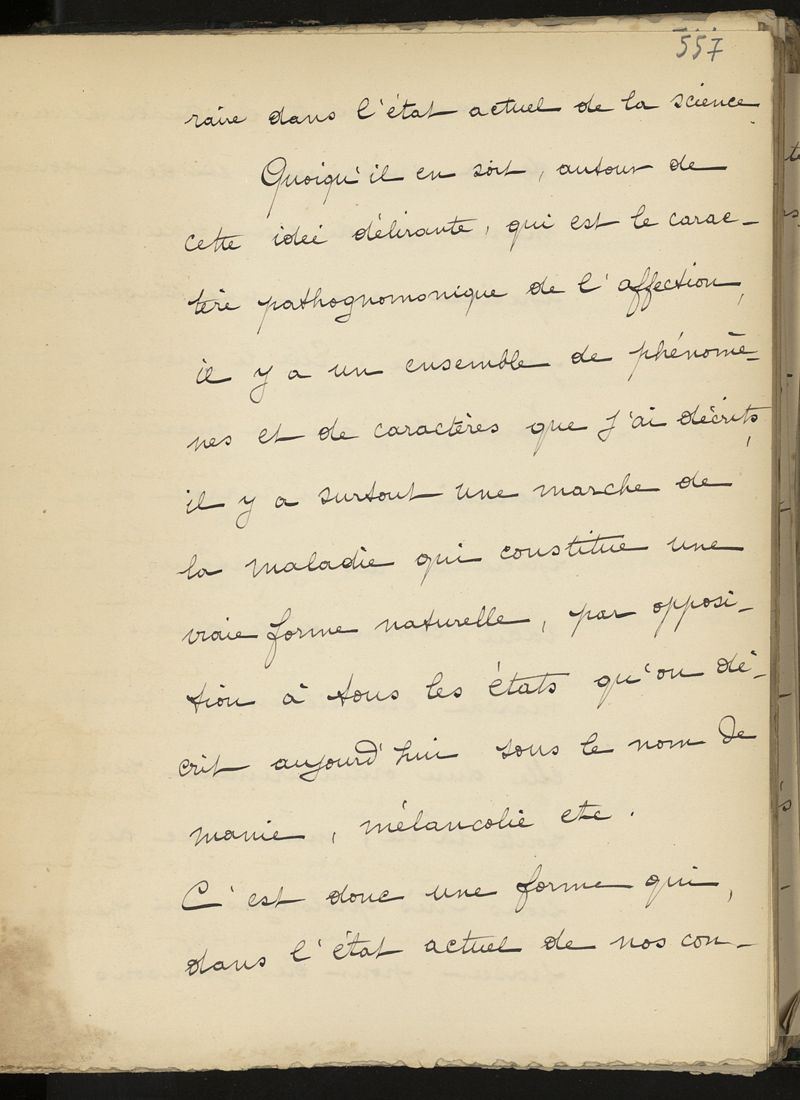 557
raire dans l'état actuel de la science.
Quoiqu'il en soit, autour de
cette idée délirante, qui est le carac-
tère pathognomonique de l'affection,
il y a un ensemble de phénomè-
nes et de caractères que j'ai décrits,
il y a surtout une marche de
la maladie qui constitue une
vraie forme naturelle, par opposi-
tion à tous les états qu'on dé-
crit aujourd'hui sous le nom de
manie, mélancolie etc.
C'est donc une forme qui,
dans l'état actuel de nos con-